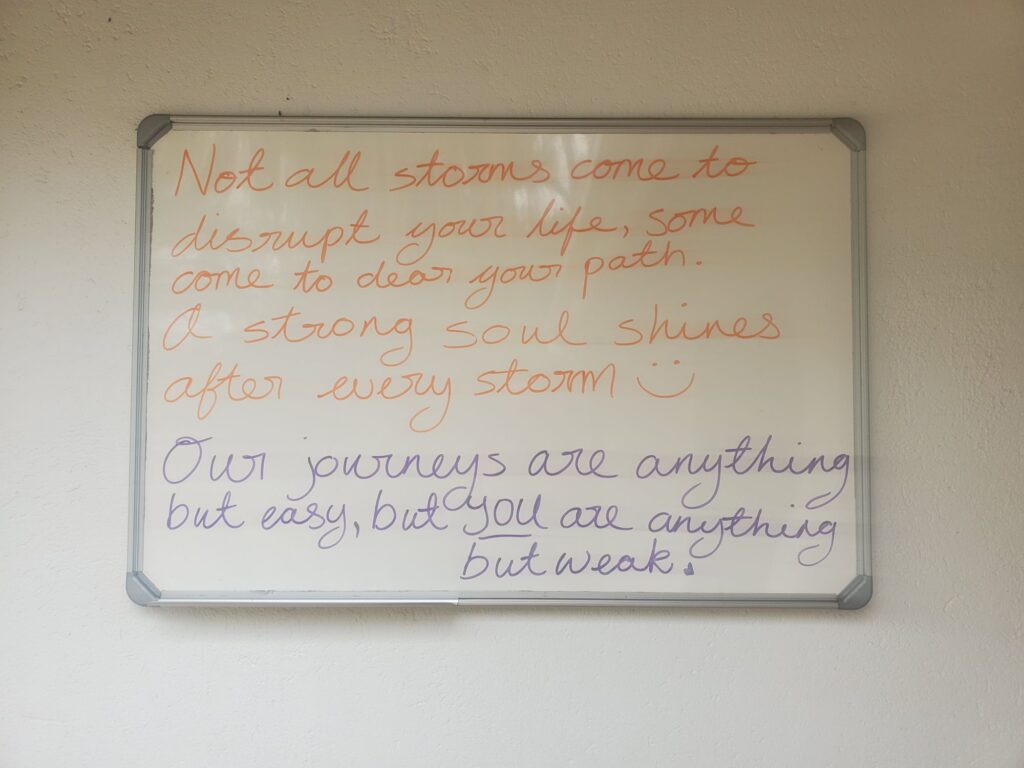 Not all storms come to
disrupt your life, some
come to clear your path.
A strong soul shines
after every storm
Our journeys are anything
but easy, but you are anything
but weak.